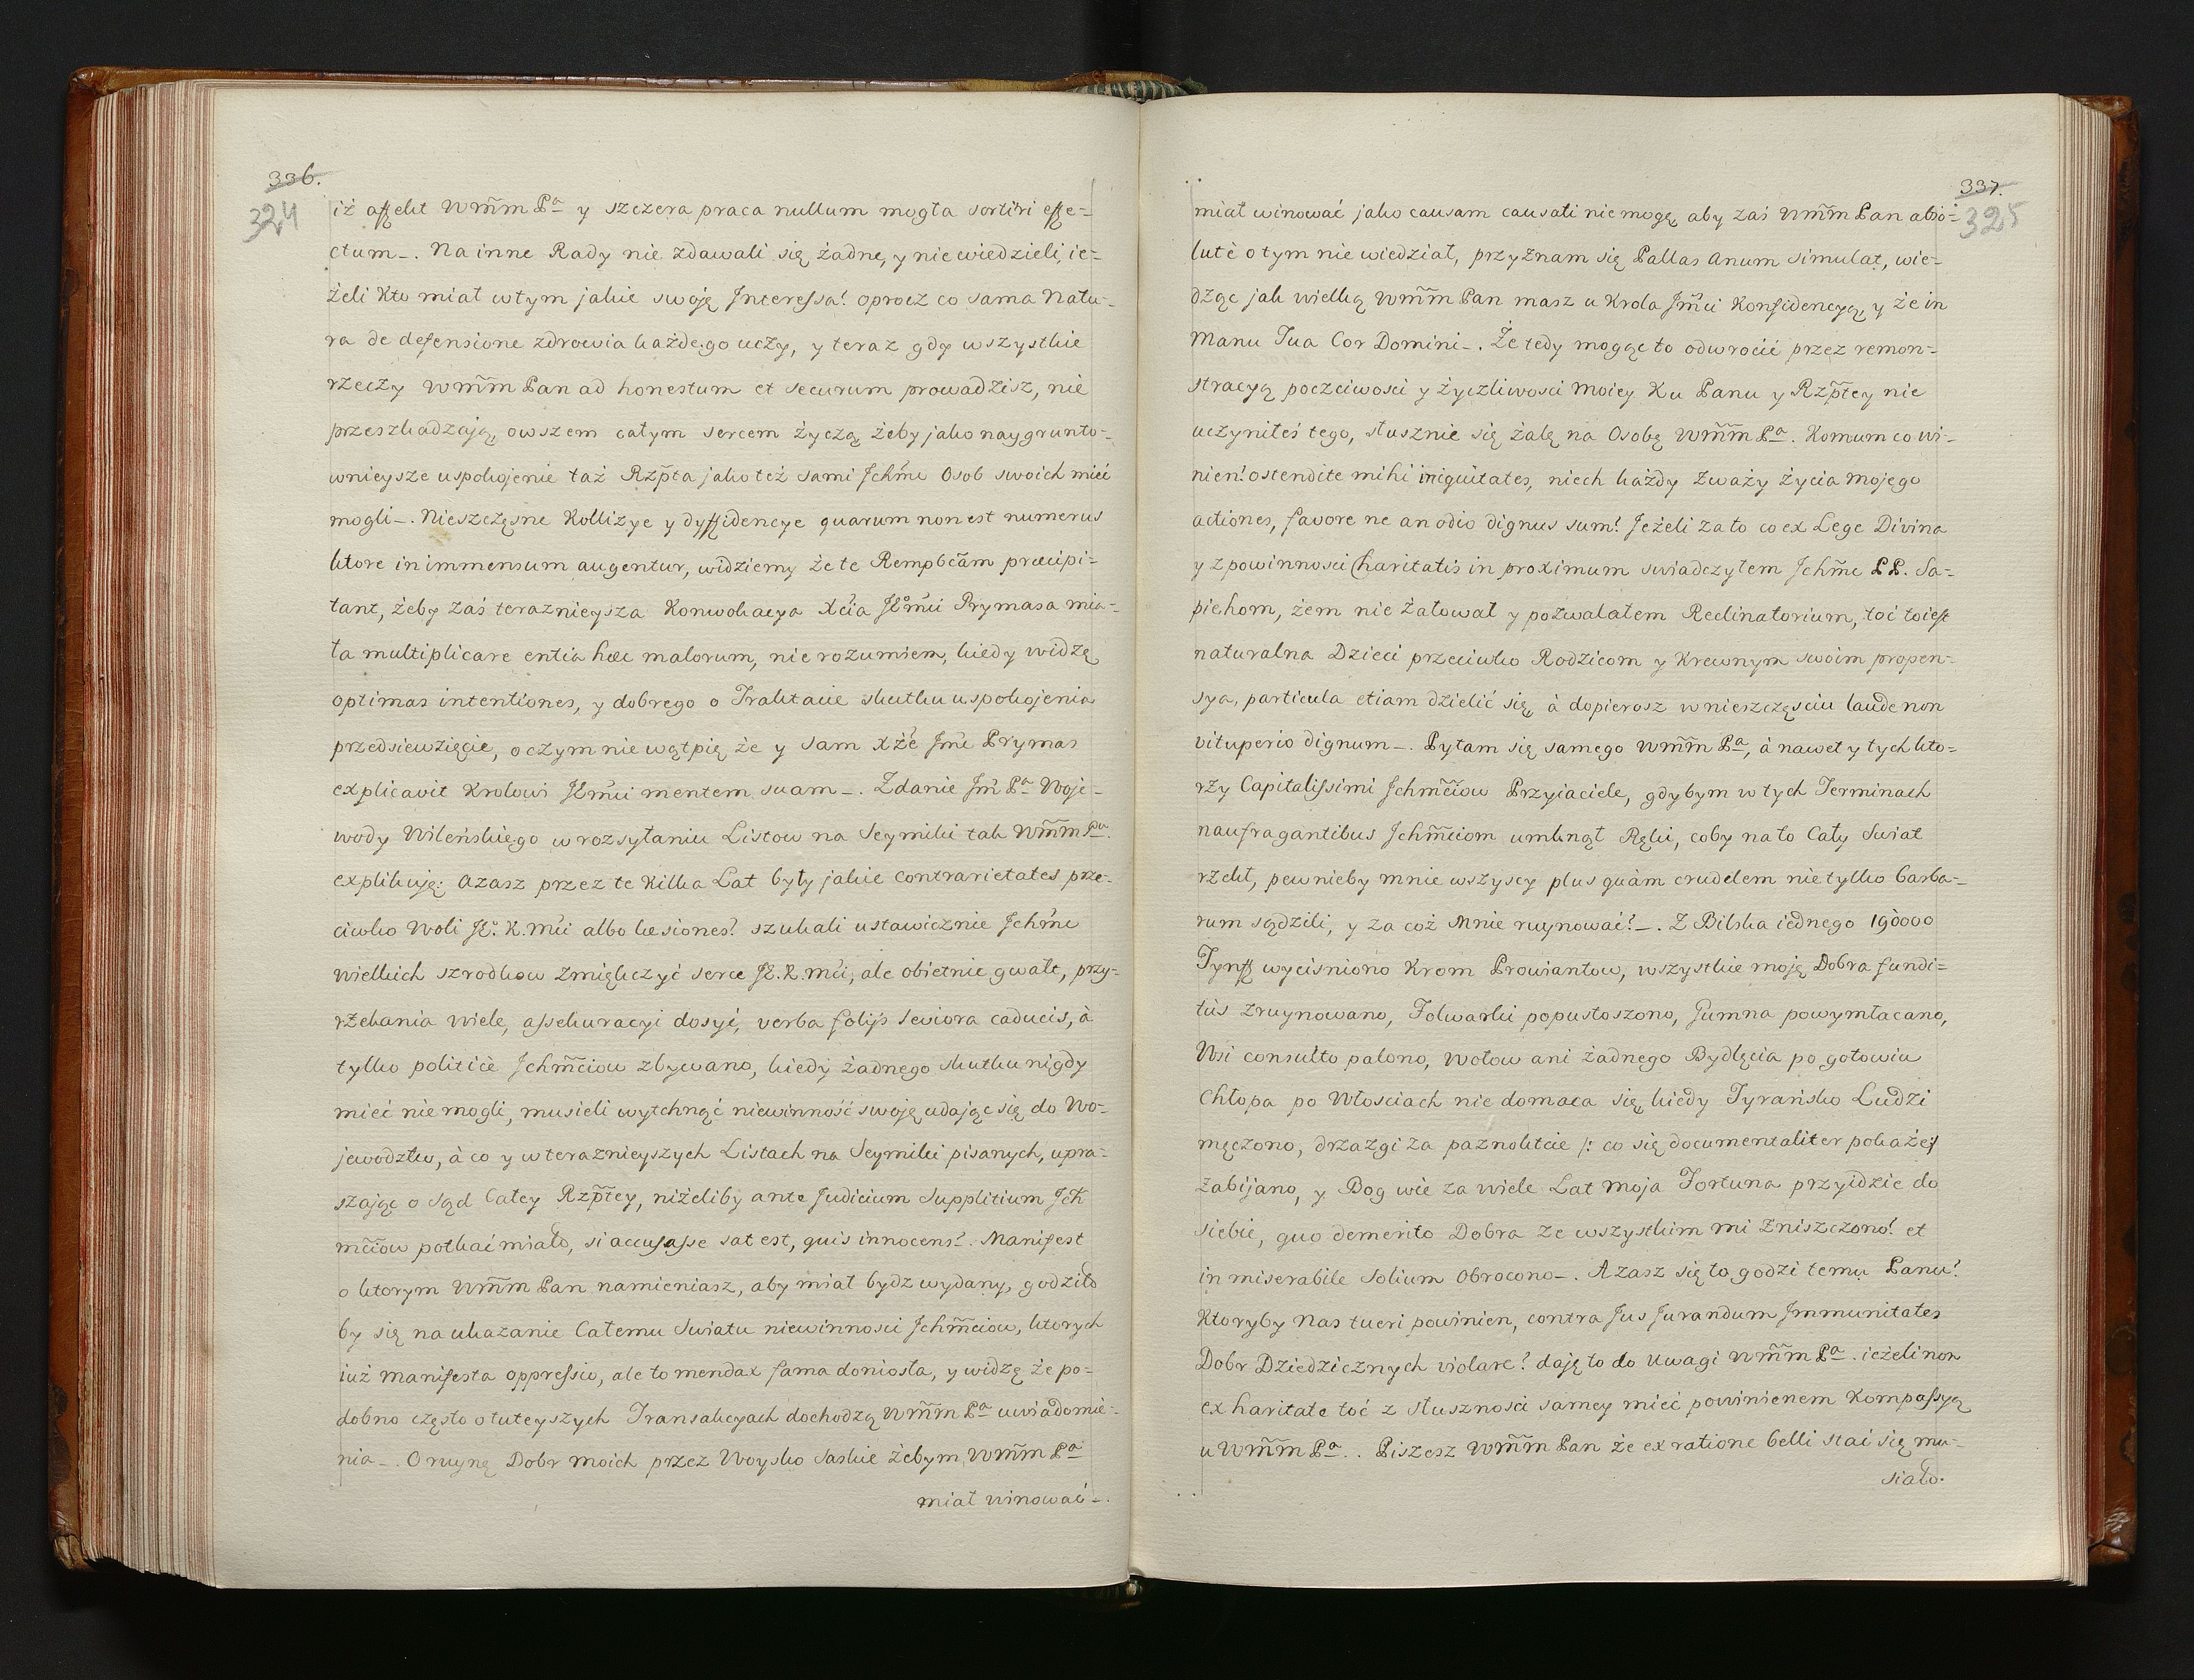 336.
324
iż affekt Wm̃m Pa y szczera praca nullum mogła sortiri effe=
ctum_. Na inne Rady nie zdawali się żadne, y nie wiedzieli, ie=
żeli kto miał w tym jakie swoję Interessa! oprocz co sama Natu=
ra de defensione zdrowia każdego uczy, y teraz gdy wszystkie
rzeczy Wm̃m Pan ad honestum et securum prowadzisz, nie
przeszkadzają, owszem całym sercem życzą żeby jako naygrunto=
wnieysze uspokojenie taż Rzp̃ta jako też sami Jchm̃c Osob swoich mieć
mogli_. Nieszczęsne Kollizye y dyffidencye quarum non est numerus
ktore in immensum augentur, widziemy że te Rempbc̃am præcipi=
tant, żeby zaś teraznieysza Konwokacya Xcia JEm̃ci Prymasa mia=
ła multiplicare entia hæc malorum, nie rozumiem, kiedy widzę
optimas intentiones, y dobrego o Traktacie skutku uspokojenia
przedsiewzięcie, o czym nie wątpię że y sam Xże Jm̃c Prymas
explicavit Krolowi JKm̃ci mentem suam_. Zdanie Jm̃ Pa Woje=
wody Wileńskiego w rozsyłaniu Listow na Seymiki tak Wm̃m Pa.
explikuję: Azasz przez te kilka Lat były jakie contrarietates prze=
ciwko Woli JK. K. Mci albo læsiones? szukali ustawicznie Jchm̃c
wielkich szrodkow zmiękczyć serce JK. K. mći, ale obietnic gwałt, przy=
rzekania wiele, assekuracyi dosyć, verba folijs leviora caducis, à
tylko politicè Jchm̃ciow zbywano, kiedy żadnego skutku nigdy
mieć nie mogli, musieli wytchnąć niewinność swoję udając się do Wo=
jewodztw, à co y w teraznieyszych Listach na Seymiki pisanych, upra=
szając o sąd Całey Rzp̃tey, niżeliby ante Judicium Supplitium Jch
m̃ciow potkać miało, si accusasse sat est, quis innocens?. Manifest
o ktorym Wm̃m Pan namieniasz, aby miał bydz wydany, godziło
by się na ukazanie Całemu Swiatu niewinności Jchm̃ciow, ktorych
iuż manifesta oppressio, ale to mendax fama doniosła, y widzę że po=
dobno często o tuteyszych Transakcyach dochodzą Wm̃m Pa uwiadomie=
nia_. O ruynę Dobr moich przez Woysko Saskie żebym Wm̃m Pa
miał winować_.
337.
325
miał winować jako causam causati nie mogę, aby zaś Wm̃m Pan abso=
lutè o tym nie wiedział, przyznam się Pallas Anum simulat, wie=
dząc jak wielką Wm̃m Pan masz u Krola Jm̃ci Konfidencyą, y że in
Manu Tua Cor Domini_. Że tedy mogąc to odwrocić przez remon=
stracyą poczciwosci y życzliwosci Moiey Ku Panu y Rzp̃tey nie
uczyniłeś tego, słusznie się żalę na Osobę Wm̃m Pa. Komum co wi=
nien! ostendite mihi iniquitates, niech każdy zważy życia mojego
actiones, favore ne an odio dignus sum! Jeżeli za to co ex Lege Divina
y z powinnosci Charitatis in proximum swiadczyłem Jchm̃c PP. Sa=
piehom, żem nie żałował y pozwalałem Reclinatorium, toć to iest
naturalna Dzieci przeciwko Rodzicom y Krewnym swoim propen=
sya, particula etiam dzielić się, à dopierosz w nieszczęsciu laude non
vituperio dignum_. Pytam się samego Wm̃m Pa, à nawet y tych kto=
rzy Capitalissimi Jchm̃ciow Przyiaciele, gdybym w tych Terminach
naufragantibus Jchm̃ciom umknął Ręki, coby na to Cały Swiat
rzekł, pewnieby mnie wszyscy plus quàm crudelem nie tylko barba=
rum sądzili, y za coż Mnie ruynować?_. Z Bilska iednego 190000
Tynff wycisniono Krom Prowiantow, wszystkie moję Dobra fundi=
tùs zruynowano, Folwarki popustoszono, Gumna powymłacano,
Wsi consulto palono, Wołow ani żadnego Bydlęcia po gotowiu
Chłopa po Włosciach nie domaca się, kiedy Tyrańsko Ludzi
męczono, drzazgi za paznokcie /: co się documentaliter pokaże:/
zabijano, y Bog wie za wiele Lat moja Fortuna przyidzie do
siebie, quo demerito Dobra ze wszystkim mi zniszczono! et
in miserabile solium obrocono_. Azasz się to godzi temu Panu?
Ktoryby Nas tueri powinien, contra Jus Jurandum Jmmunitates
Dobr Dziedzicznych violare? daję to do Uwagi Wm̃m Pa. ieżeli non
ex haritate toć z słusznosci samey mieć powinienem Kompassyą
u Wm̃m Pa.. Piszesz Wm̃m Pan że ex ratione belli stać się mu=
siało.